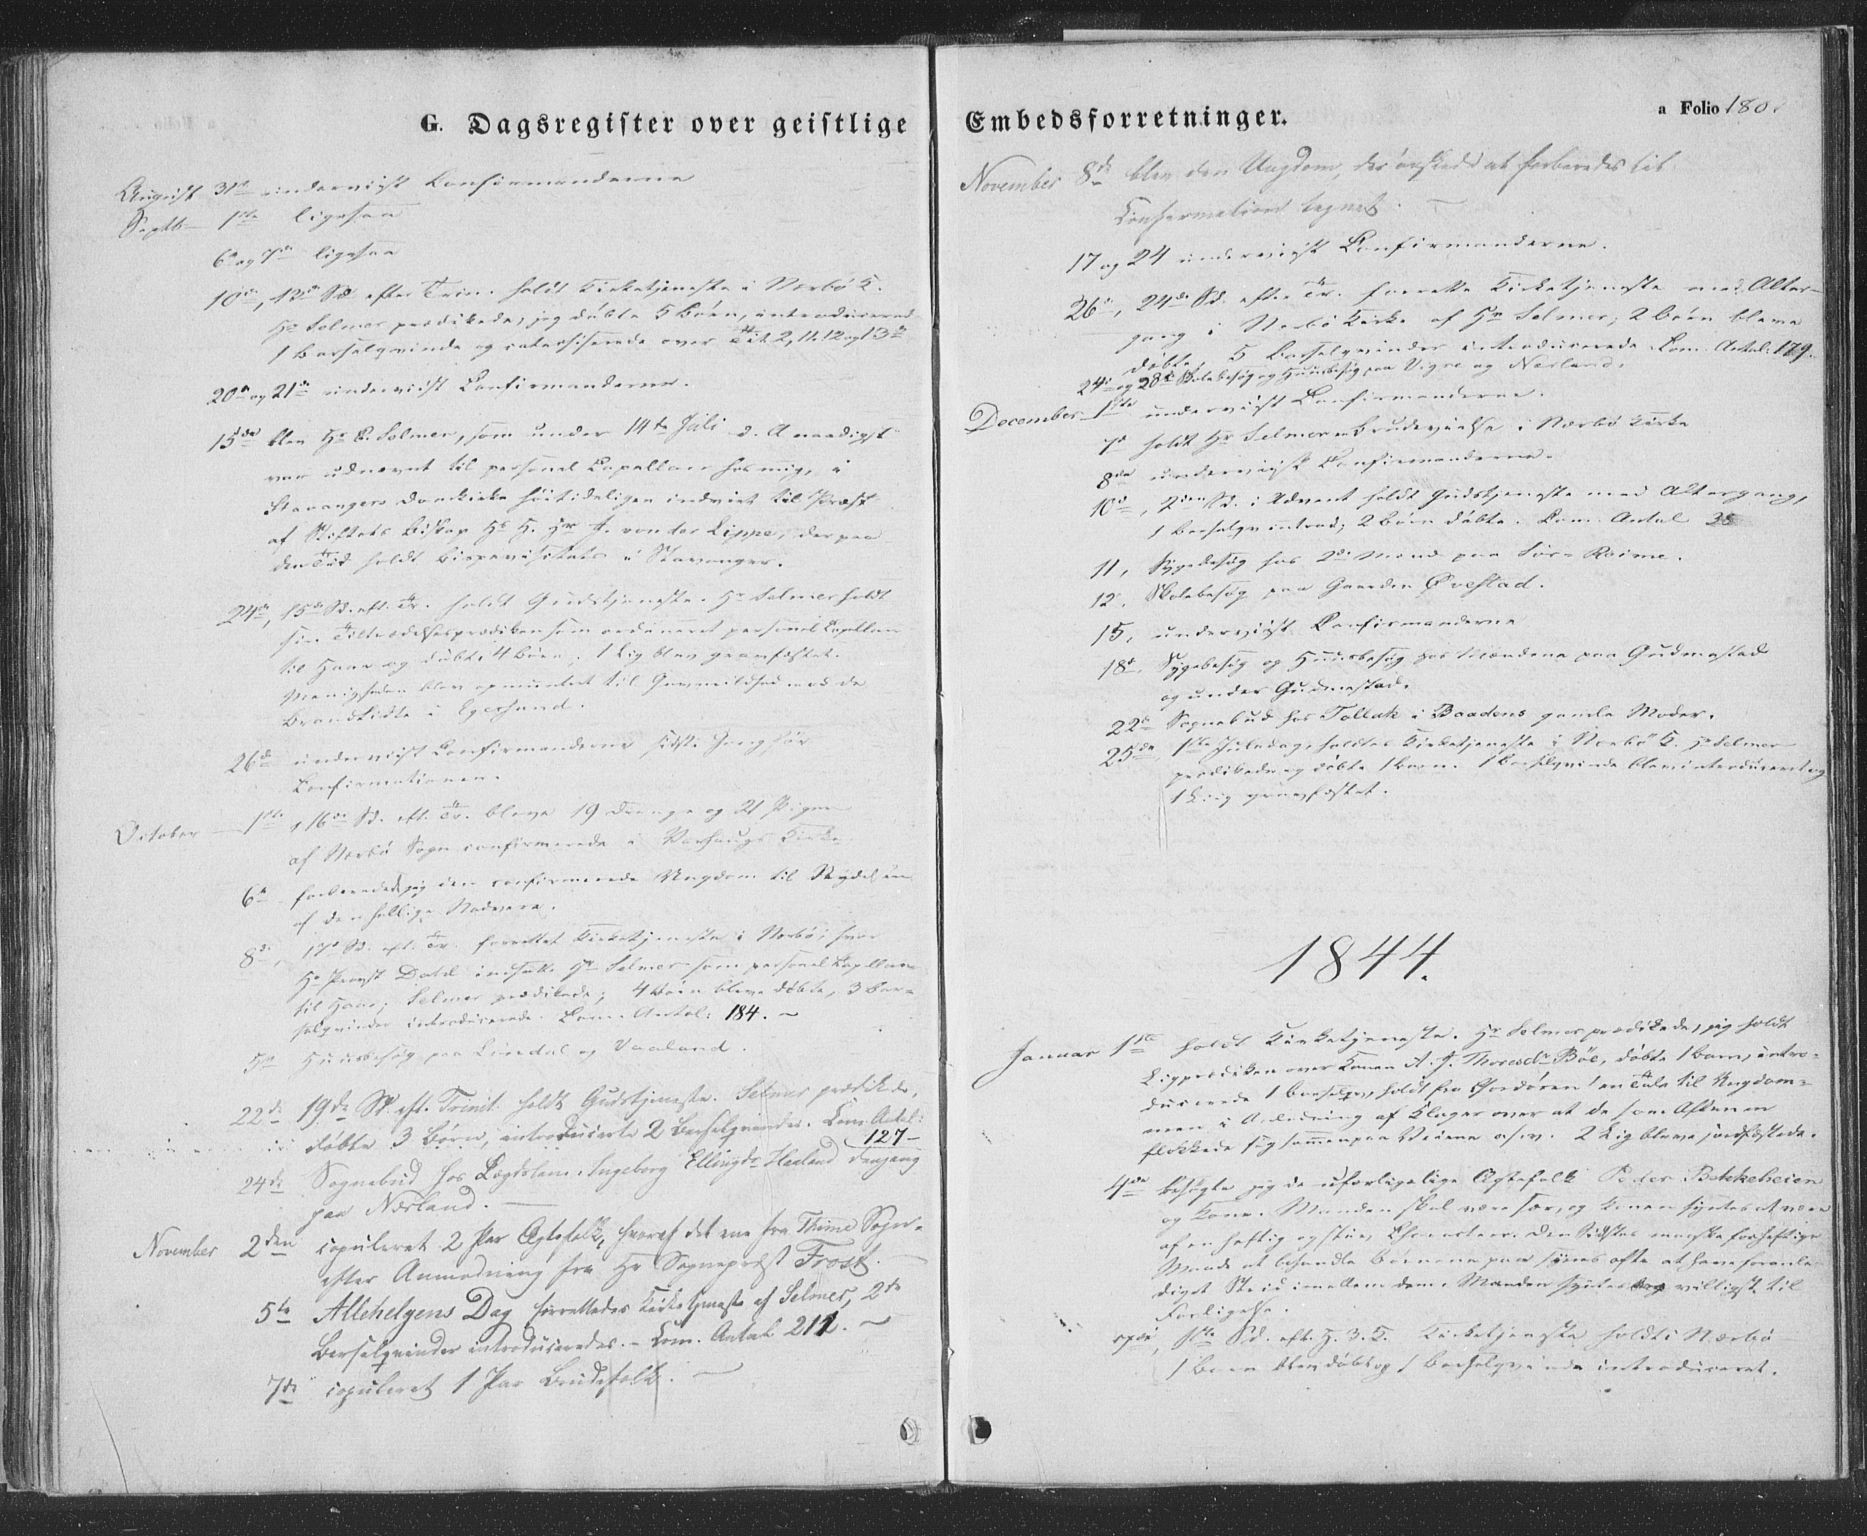 G. Dagsregister over geistlige
August 31te underviist Confirmanderne
Septb. 1ste ligesaa
6te og 7de ligesaa
10de, 13de Sd. efter Trin. holdt Kirketjeneste i Nærbø K.
Hr Selmer prædikede; jeg døbte 5 Børn, introducerede
1 Barselqvinde og catechiserede over Tit. 2, 11. 12 og 13de
20de og 21de underviist Confirmanderne.
15de blev Hr Selmer, som under 14de Juli d. A naadigst
var udnævnt til personel Capellan hos mig, i
Stavangers Domkirke høitideligen indviet til Præst
af Stiftets Biskop von der Lippe, der paa
den Tid holdt Bispevisitats i Stavanger.
24de, 15de Sd. eft. Tr. holdt Gudstjeneste. Hr Selmer holdt
sin Tiltrædelsesprædiken som ordineret personel Capellan
til Haae og døbte 4 Børn. 1 Lig blev gravfæstet.
Menigheden blev opmuntret til Gavmildhed mod de
Brandlidte i Egersund.
26de underviist Confirmanderne sidste Gang før
Confirmationen.
October 1ste, 16de Sd. eft. Tr. bleve 19 Drenge og 21 Piger
af Nærbø Sogn confirmerede i Varhaugs Kirke
6te forberedede jeg den confirmerede Ungdom til Nydelsen
af den hellige Nadvere.
8de, 17de Sd. eft. Tr. forrettet Kirketjeneste i Nærbø, hvor
Hr Provst Dahl indsatte Hr Selmer som personel Capellan
til Haae; Selmer prædikede; 4 Børn bleve døbte, 3 Bar-
selqvinder introducerede. Com. Antal: 184. -
Huusbesøg paa Lindal og Vaaland.
22de 19de Sd. eft. Trinit. holdt Gudstjeneste. Selmer prædikede,
døbte 3 Børn, introducerte 2 Barselqvinder. Com. Antal:
127 -
24de Sognebud hos Lægdslem Ingeborg Ellingdr Haaland dengang
paa Nærland. -
November 2den copuleret 2 Par Ægtefolk, hvoraf det ene fra Thime Sogn
efter Anmodning fra Hr Sognepræst Frost. -
5te Allehelgens Dag forrettedes Kirketjeneste af Selmer, 2de
Barselqvinder introduceredes. - Com. Antal 211. -
7de copuleret 1 Par Brudefolk. -
Embedsforretninger.
a Folio 180.
November 8de blev den Ungdom, der ønskede at forberedes til
Confirmation tegnet. -
17 og 24 underviist Confirmanderne.
26de, 24de Sd. efter Tr. forrettet Kirketjeneste med Alter-
gang i Nærbø Kirke af Hr Selmer; 2 Børn bleve
døbte, 5 Barselqvinder introducerede Com. Antal: 179.
24de og 28de Skolebesøg og Huusbesøg paa Vigre og Nærland.
December 1ste underviist Confirmanderne.
7de holdt Hr Selmer Brudevielse i Nærbø Kirke
8de underviist Confirmanderne.
10de, 2den Sd. i Advent holdt Gudstjeneste med Altergang,
1 Barselqv introd; 2 Børn døbte. Com. Antal 38
11, Sygebesøg hos 2de Mænd paa Sør-Reime.
12, Skolebesøg paa Gaarden Øvestad.
15, underviist Confirmanderne
18de, Sygebesøg og Huusbesøg hos Mændene paa Gudmestad
og under Gudmestad.
22de Sognebud hos Tollak i Baadens gamle Moder.
25de, 1ste Juledag, holdtes Kirketjeneste i Nærbø K. Hr Selmer
prædikede og døbte 1 Barn. 1 Barselqvinde blev introduceret og
1 Liig gravfæstet.
1844.
Januar 1ste holdt Kirketjeneste. Hr Selmer prædikede, jeg holdt
Ligprædiken over Konen A. J. Thoresdr Bøe, døbte 1 Barn, intro-
ducerede 1 Barselqv, holdt fra Chordøren en Tale til Ungdom-
men i Anledning af Klager over at de som Aftenen
flokkede sig sammen paa Veiene o.s.v. 2 Lig bleve jordfæstede.
4de besøgte jeg de uforligelige Ægtefolk Peder Bekkeheien
og Kone. Manden skal være sær, og Konen synes at være
af en heftig og stiv Character. Den Sidstes maaske forheftige
Maade at behandle Børnene paa synes ofte at have foranle-
diget Strid imellem dem. Manden syntes villigst til
Forligelse.
1ste Sd. eft. H. 3. K. Kirketjeneste holdt i Nærbø
1 Barn blev døbt og 1 Barselqvinde introduceret.